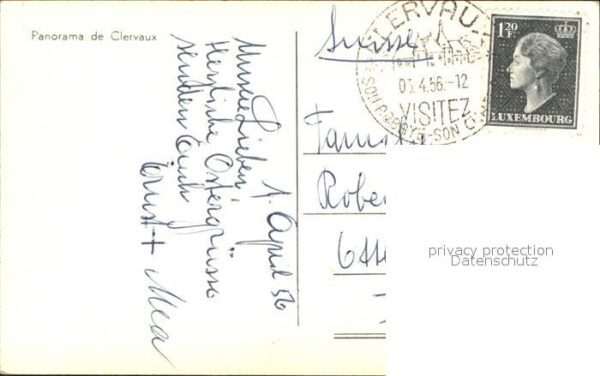 Panorama de Clervaux
1. April 56
Meine Lieben,
Herzliche Ostergrüsse
senden Euch
Ernst + Mea
Suisse
CLERVAU
03.4.56.-12
VISITEZ
SON ABBAYE-SON
1.20
F.
LUXEMBOURG
Fami
Robe
privacy protection
Datenschutz